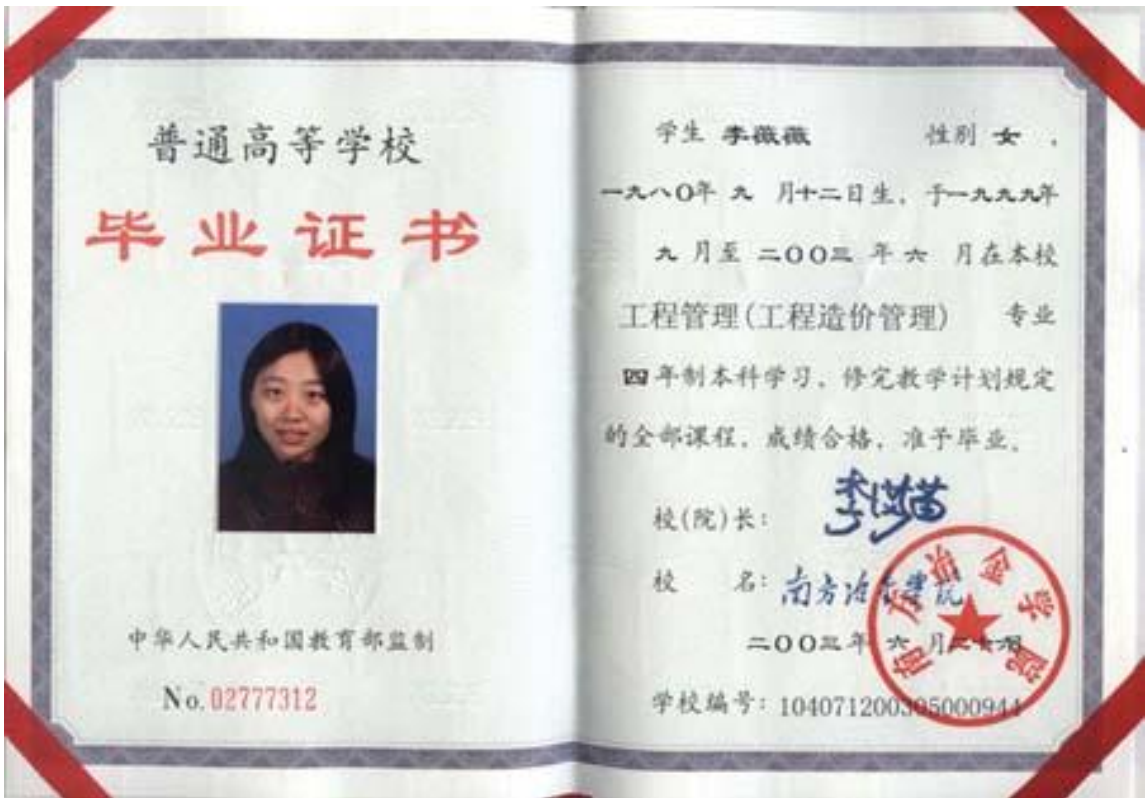 普通高等学校
毕业证书
中华人民共和国教育部监制
No.02777312
学生 李薇薇 性别 女，
一九八〇年 九 月十二日生，于一九九九年
九 月至 二〇〇三 年 六 月在本校
工程管理(工程造价管理) 专业
四年制本科学习，修完教学计划规定
的全部课程，成绩合格，准予毕业。
校(院)长：
校 名：南方冶金学院
二〇〇三年 六 月
学校编号：104071200305000944
南方冶金学院